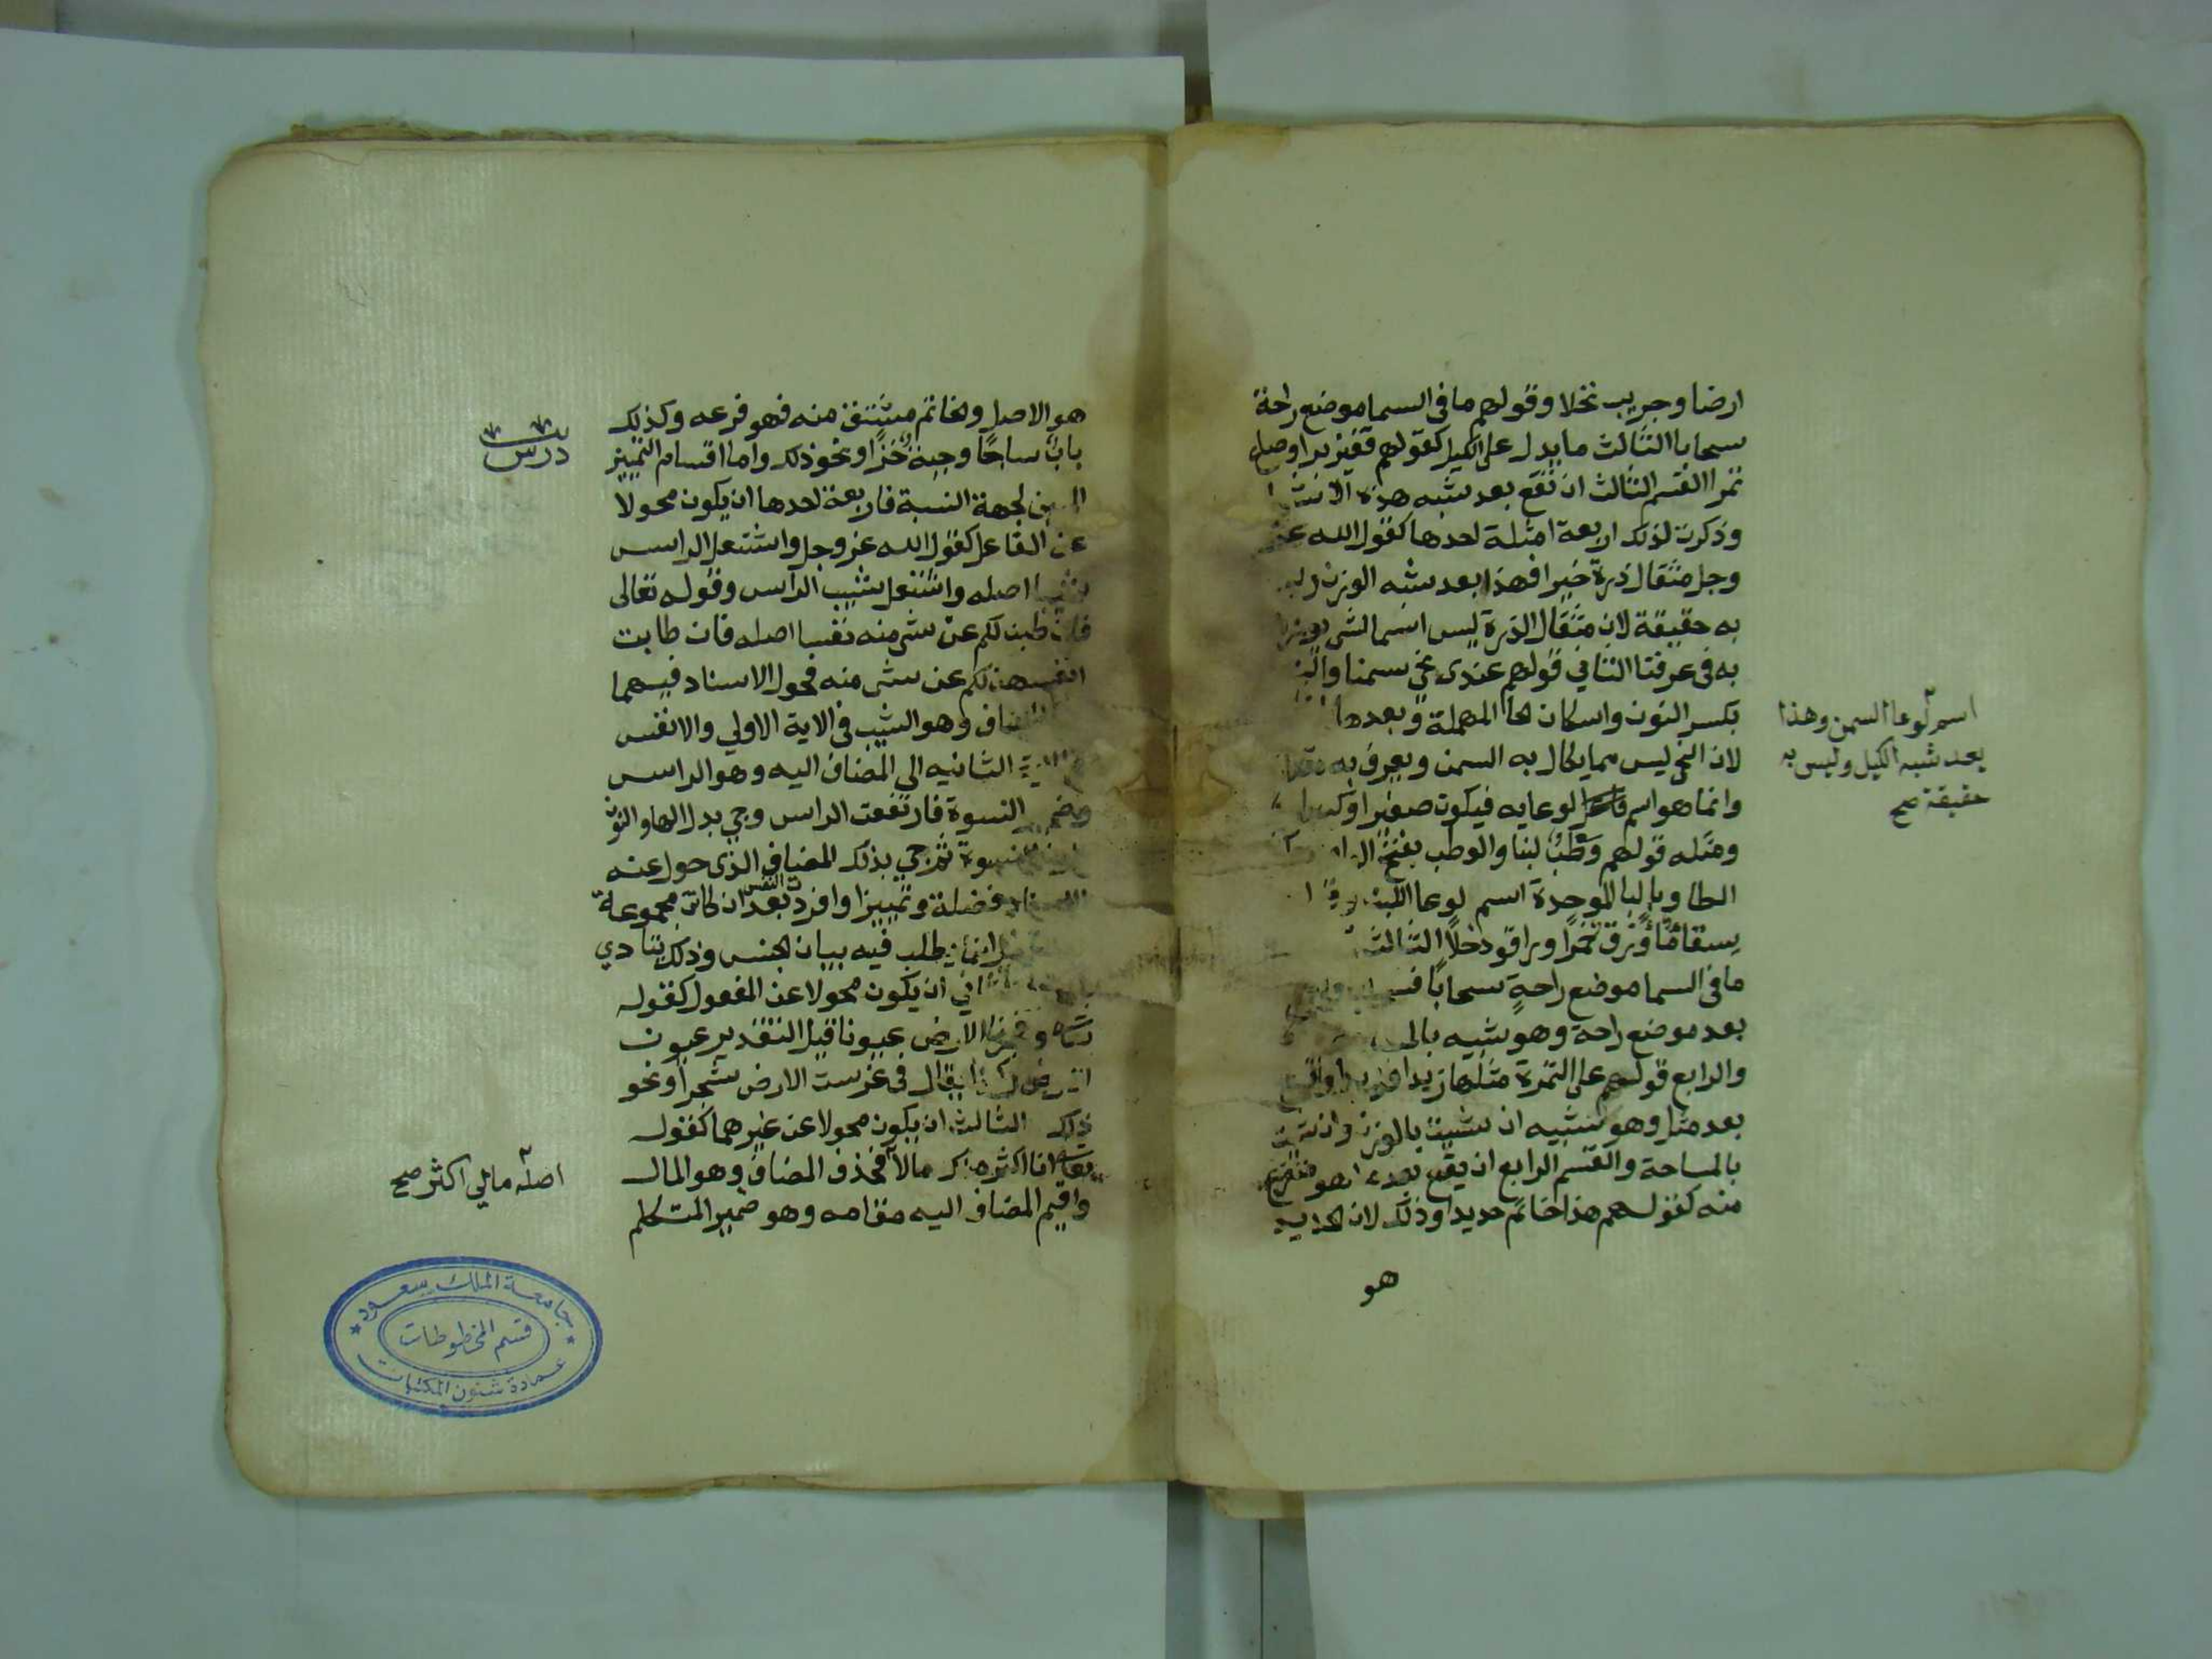 ارضا وجريب نخلا وقولهم ما فى السما موضع راحة
سحابا الثالث ما يدل على الكيل كقولهم قفيز برا وصاع
تمرا القسم الثالث ان تقع بعد شبه هذه
وذكرت لذلك اربعة امثلة احدها كقول الله عز
وجل مثقال ذرة خيرا فهذا بعد شبه الوزن
به حقيقة لان مثقال الذرة ليس اسما لشى يوزن
به فى عرفنا الثاني قولهم عندى نحى سمنا
بكسر النون واسكان الحا المهملة وبعدها
اسم لوعا السمن وهذا
بعد شبه الكيل وليس به
حقيقة صح
لان النحى ليس مما يكال به السمن ويعرف به
وانما هو اسم لوعايه فيكون صغيرا او كبيرا
ومثله قولهم وطب لبنا والوطب بفتح
الطا وبالبا الموحدة اسم لوعا اللبن
سقا ماء وزق خمرا وراقود خلا الثالث
ما فى السما موضع راحة سحابا
بعد موضع راحة وهو شبيه
والرابع قولهم على التمرة مثلها زبدا فزبدا واقع
بعد مثل وهو شبيه ان شيت بالوزن وان شيت
بالمساحة والقسم الرابع ان يقع بعد ما هو متفرع
منه كقولهم هذا خاتم حديدا وذلك لان الحديد
هو
هو الاصل والخاتم مشتق منه فهو فرعه وكذلك
باب ساجا وجبة خزا ونحو ذلك واما اقسام التمييز
درس
المبين لجهة النسبة فاربعة احدها ان يكون محولا
عن الفاعل كقول الله عز وجل واشتعل الراس
شيبا اصله واشتعل شيب الراس وقوله تعالى
فان طبن لكم عن شى منه نفسا اصله فان طابت
انفسهن لكم عن شى منه فحول الاسناد فيهما
المضاف وهو الشيب فى الاية الاولي والانفس
الثانيه الى المضاف اليه وهو الراس
وضمير النسوة فارتفعت الراس وجي بدل الها والنون
النسوة ثم جي بذلك المضاف الذى حول عنه
فضلة وتمييزا وافردت النفس بعد ان كانت مجموعة
انما يطلب فيه بيان الجنس وذلك يتادي
ان يكون محولا عن المفعول كقوله
وفجرنا الارض عيونا قيل التقدير عيون
الارض وكذا يقال فى غرست الارض شجرا ونحو
ذلك الثالث ان يكون محولا عن غيرهما كقوله
تعالى انا اكثر منك مالا فحذف المضاف وهو المال
اصله مالي اكثر صح
واقيم المضاف اليه مقامه وهو ضمير المتكلم
جامعة الملك سعود
قسم المخطوطات
عمادة شئون المكتبات